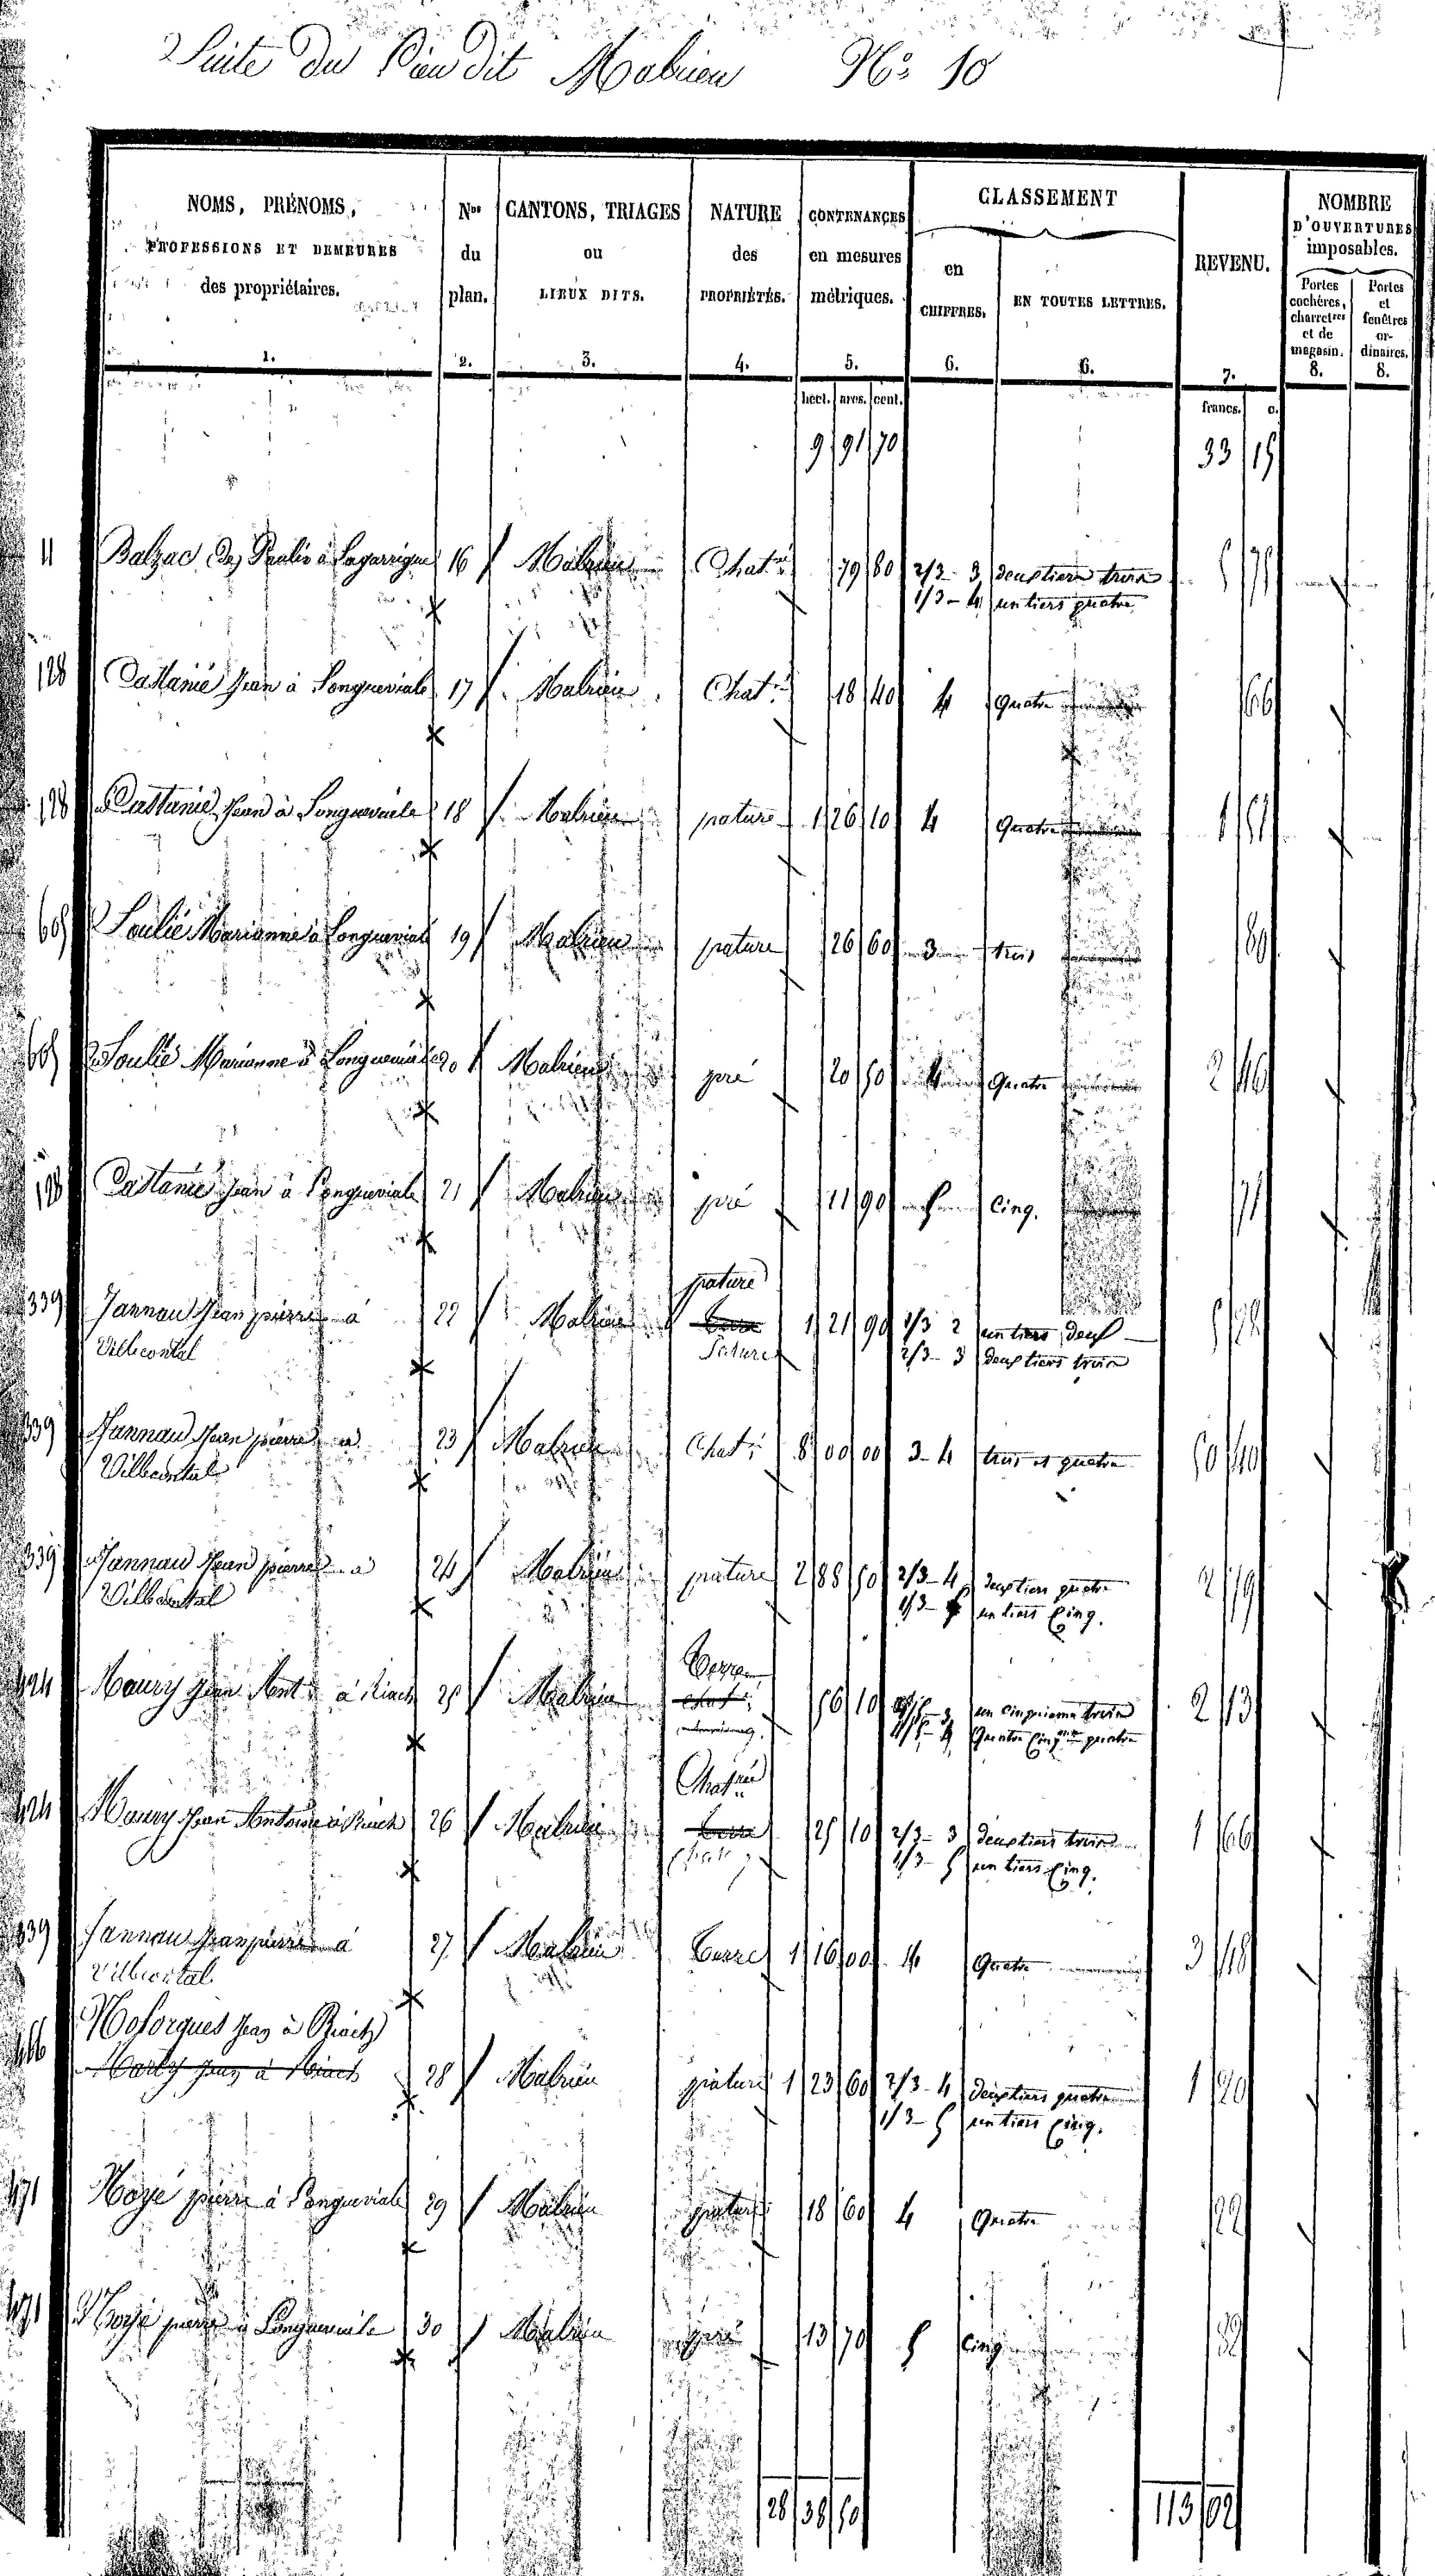 Suite du Lieu dit Malrieu N° 10
NOMS, PRÉNOMS, PROFESSIONS ET DEMEURES des propriétaires. 1.
Nos du plan. 2.
CANTONS, TRIAGES ou LIEUX DITS. 3.
NATURE des PROPRIÉTÉS. 4.
CONTENANCES en mesures métriques. 5.
CLASSEMENT
en CHIFFRES. 6.
EN TOUTES LETTRES. 6.
REVENU. 7.
NOMBRE D'OUVERTURES imposables.
Portes cochères, charretres et de magasin. 8.
Portes et fenêtres ordinaires. 8.
hect. ares. cent. francs. c.
9 91 70 33 15
11 Balzac à Lagarrigue 16 Malrieu Chat.re 79 80 2/3 - 3 deux tiers trois
1/3 - 4 un tiers quatre
128 Castanié Jean à Longueviale 17 Malrieu Chat.re 18 40 4 Quatre 66
128 Castanié Jean à Longueviale 18 Malrieu pature 1 26 10 4 Quatre 1 51
605 Soulié Marianne à Longueviale 19 Malrieu pature 26 60 3 trois 80
605 Soulié Marianne à Longueviale 20 Malrieu pré 20 50 4 Quatre 2 46
128 Castanié Jean à Longueviale 21 Malrieu pré 11 90 5 Cinq. 71
pature
339 Jannau Jean pierre à 22 Malrieu terre 1 21 90 1/3 2 un tiers deux
Villecontal pature 2/3 - 3 deux tiers trois
339 Jannau Jean pierre à 23 Malrieu Chat.re 8 00 00 3 - 4 trois et quatre 50 40
Villecontal
339 Jannau Jean pierre à 24 Malrieu pature 2 88 50 2/3 - 4 deux tiers quatre 2 79
Villecontal 1/3 - 5 un tiers Cinq.
Terre
424 Maury Jean Ant.e à Riach 25 Malrieu 56 10 1/5 - 3 un cinquieme trois 2 13
4/5 - 4 Quatre Cinq.me quatre
Chat.re
424 Maury Jean Antoine à Riach 26 Malrieu terre 25 10 2/3 - 3 deux tiers trois 1 66
1/3 - 5 un tiers Cinq.
339 Jannau Jean pierre à 27 Malrieu terre 1 16 00 4 Quatre 3 48
Villecontal
466 Nosorgues Jean à Riach
Maury Jean à Riach 28 Malrieu pature 1 23 60 2/3 - 4 deux tiers quatre 1 20
1/3 - 5 un tiers Cinq.
471 Noyé pierre à Longueviale 29 Malrieu pature 18 60 4 Quatre 22
471 Noyé pierre à Longueviale 30 Malrieu pré 13 70 5 Cinq 82
28 38 50 113 02